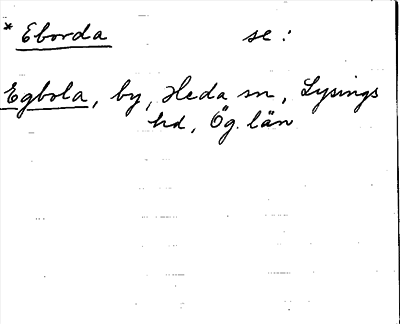 * Eborda se:
Egbola, by, Heda sn, Lysings
hd, Ög. län